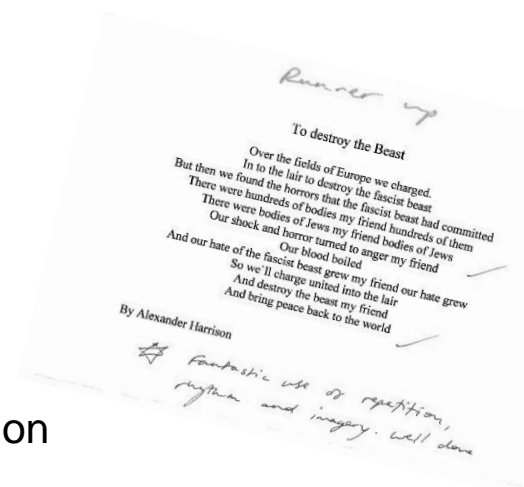 Runner up
To destroy the Beast
Over the fields of Europe we charged.
In to the lair to destroy the fascist beast
But then we found the horrors that the fascist beast had committed
There were hundreds of bodies my friend hundreds of them
There were bodies of Jews my friend bodies of Jews
Our shock and horror turned to anger my friend
Our blood boiled
And our hate of the fascist beast grew my friend our hate grew
So we'll charge united into the lair
And destroy the beast my friend
And bring peace back to the world
By Alexander Harrison
Fantastic use of repetition,
rhythm and imagery. well done
on